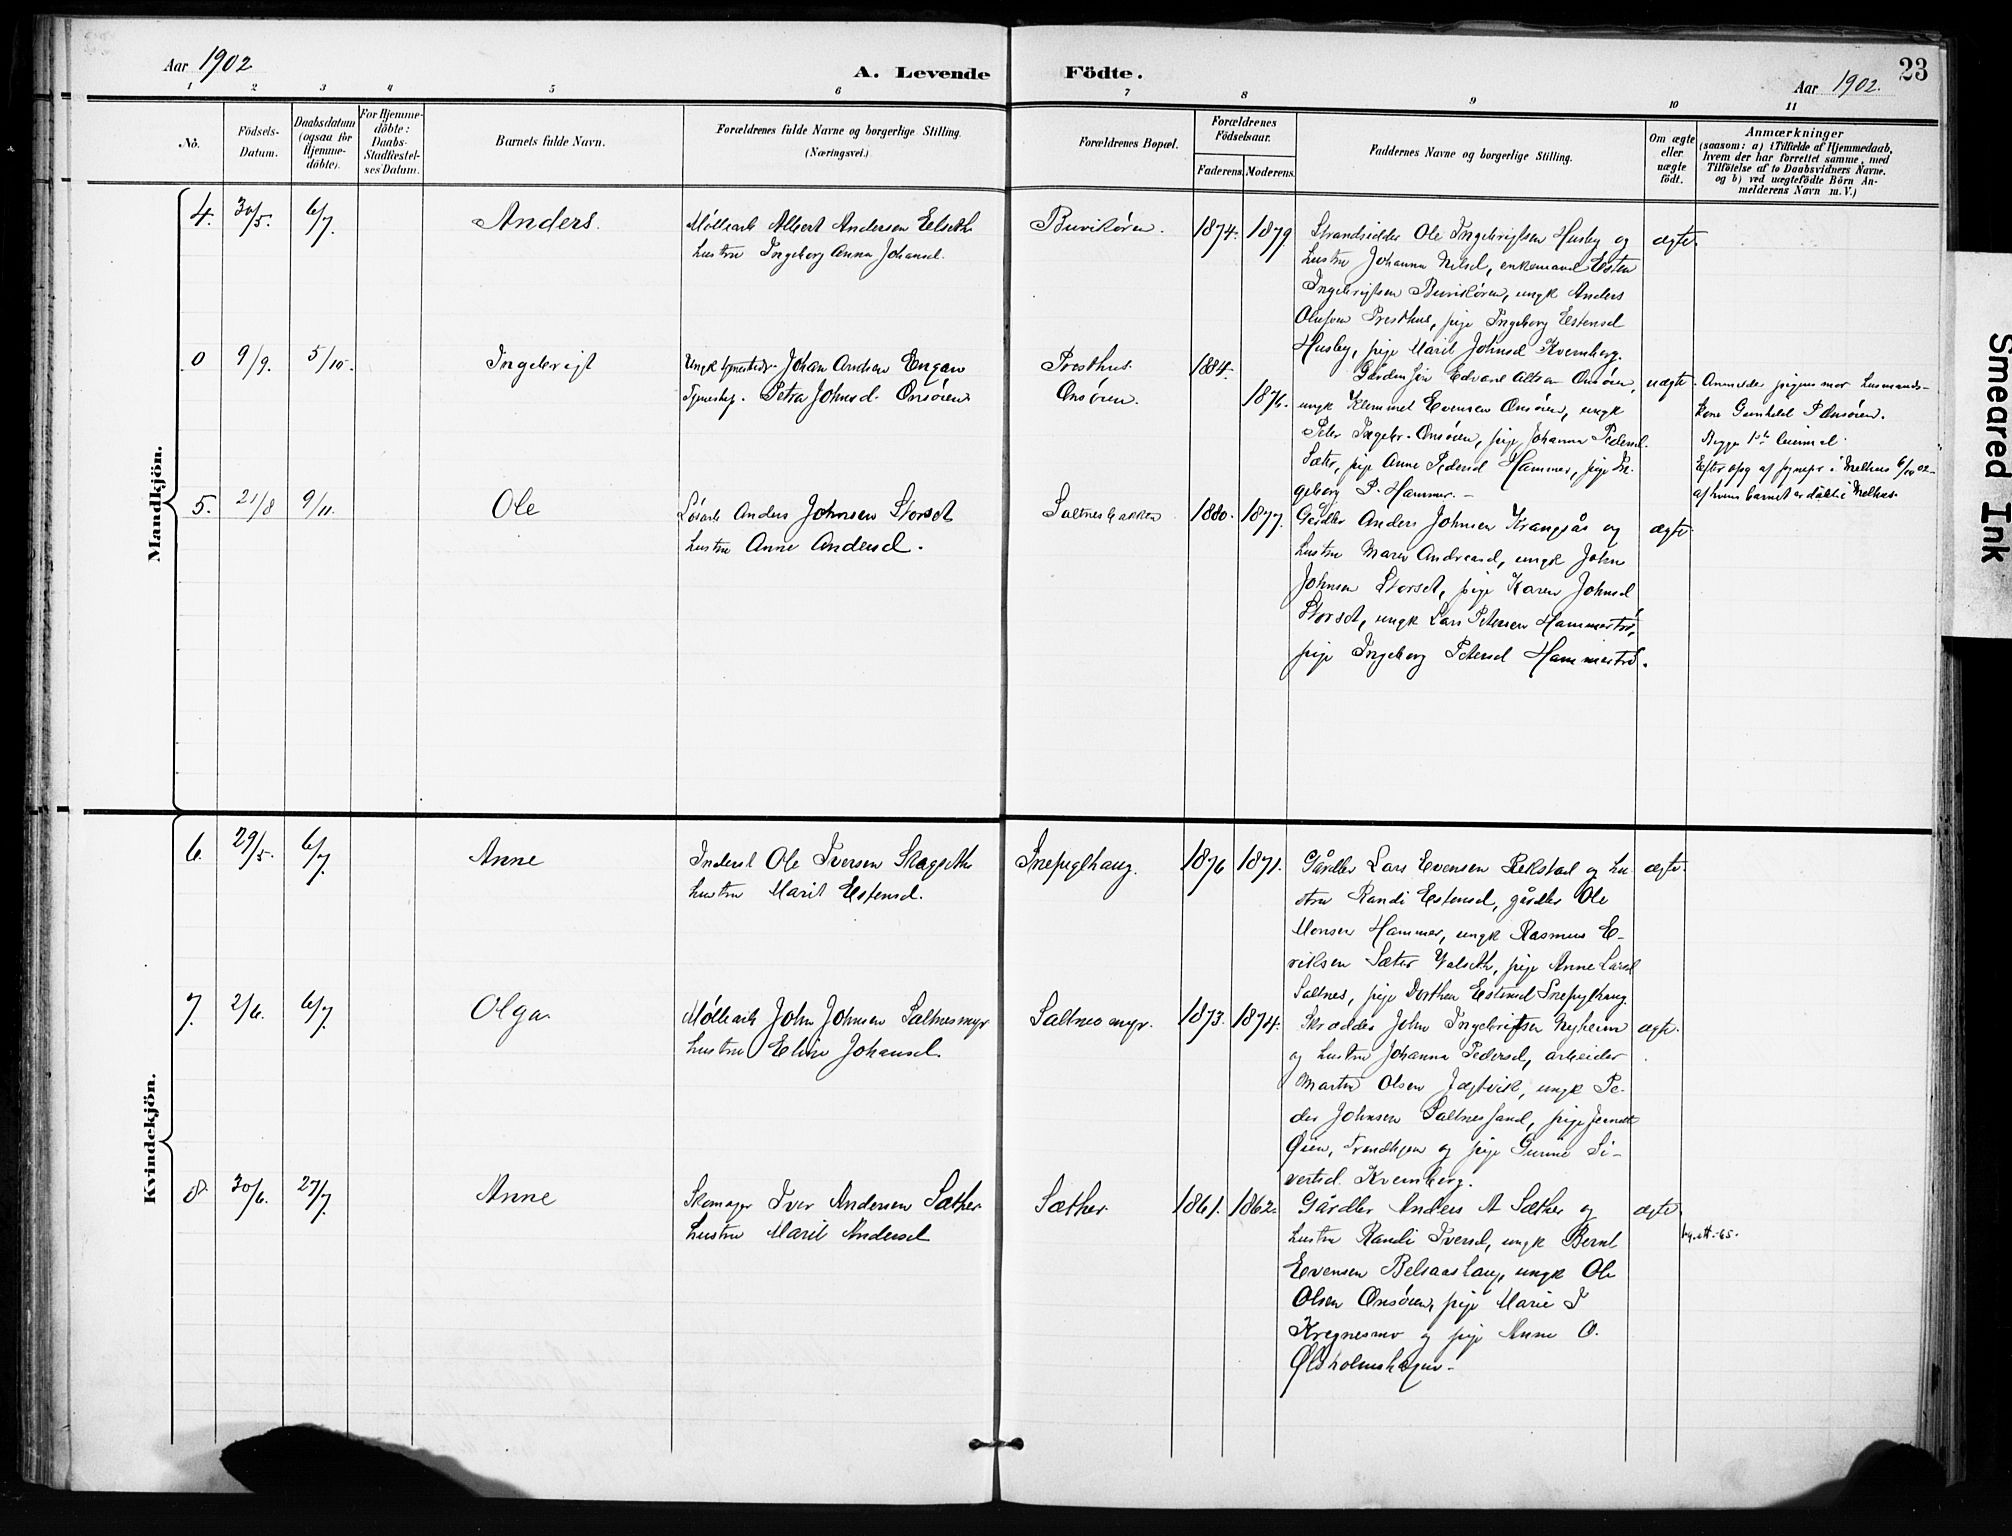 Aar 1902
A. Levende Födte.
Aar 1902.
23
1 2 3 4 5 6 7 8 9 10 11
No.
Födsels-
Datum.
Daabsdatum
(ogsaa for
Hjemme-
döbte).
For Hjemme-
döbte:
Daabs-
Stadfestel-
ses Datum.
Barnets fulde Navn.
Forældrenes fulde Navne og borgerlige Stilling.
(Næringsvei.)
Forældrenes Bopæl.
Forældrenes
Födselsaar.
Faderens. Moderens.
Faddernes Navne og borgerlige Stilling.
Om ægte
eller
uægte
födt.
Anmærkninger
(saasom: a) i Tilfælde af Hjemmedaab,
hvem der har forrettet samme, med
Tilföielse af to Daabsvidners Navne.
og b) ved uægtefödte Börn An-
melderens Navn m. V.)
Mandkjön.
4. 30/5. 6/7. Anders.
Møllearb Albert Andersen Eelseth
hustru Ingeborg Anna Johansd.
Buvikören. 1874. 1879
Strandsidder Ole Ingebrigtsen Husby og
hustru Johanna Nilsd, enkemand Esten
Ingebrigtsen Buvikören, ungk Anders
Olufsen Presthus, pige Ingeborg Estensd
Husby, pige Marit Johnsd Kvernberg.
ægte.
0 9/9. 5/10. Ingebrigt
Ungk tjenestedr. Johan Andsen Engan
Tjenestep. Petra Johnsd. Onsöien
Presthus
Onsören.
1884. 1876.
Edvard Olsen Onsören,
ungk Klemmet Evensen Onsören, ungk
Peter Ingebr. Onsören, pige Johanna Pedersd.
Sæter, pige Anne Pedersd Hammer, pige In-
geborg P. Hammer.
uægte
Anmelder pigens mor husmands-
kone Gunhild P Onsören.
Begge 1ste leiermal.
i Melhus 6/10 02
af hvem barnet er döbt i Melhus.
5. 21/8 9/11. Ole
Lösarb Anders Johnsen Storset
hustru Anne Andersd.
Saltnesbakken 1880. 1877.
Gårdbr Anders Johnsen Krangsås og
hustru Maren Andreasd, ungk John
Johnsen Storset, pige Karen Johnsd
Storset, ungk Lars Petersen Hammertrö,
pige Ingeborg Petersd Hammertrö.
ægte.
Kvindekjön.
6. 29/5. 6/7. Anne
Inderst Ole Iversen Skogseth
hustru Marit Estensd.
Snefuglhaug. 1876 1871.
Gårdbr Lars Evensen Rekstad og hu
stru Randi Estensd, gårdbr Ole
Monsen Hammer, ungk Rasmus E-
riksen Sæter Valseth, pige Anne Larsd
Saltnes, pige Dorthea Estensd Snefuglhaug.
ægte.
7. 2/6. 6/7. Olga
Møllearb John Johnsen Saltnesmyr
hustru Eline Johansd.
Saltnesmyr. 1873. 1874.
Skrædder John Ingebrigtsen Nyheim
og hustru Johanna Pedersd, arbeider
Martin Olsen Jægtvik, ungk Pe-
der Johnsen Saltnessand, pige
Öien, Trondhjem og pige Gurine Si-
vertsd. Kvernberg.
ægte.
8. 30/6. 27/7. Anne
Skomager Iver Andersen Sæther.
hustru Marit Andersd
Sæther. 1861. 1862.
Gårdbr Anders A Sæther og
hustru Randi Iversd, ungk Bernt
Evensen Belsaashaug, ungk Ole
Olsen Onsören, pige Marie I
Kregnesmo og pige Anne O.
Ölsholmshagen.
ægte.
Smeared Ink